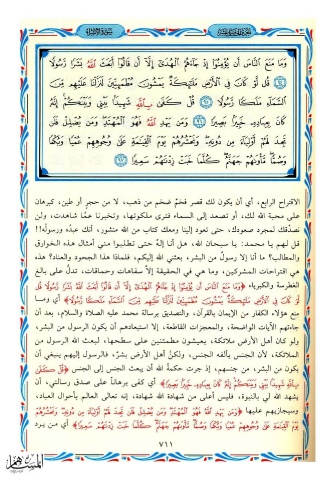 سورة الإسراء
وَمَا مَنَعَ النَّاسَ أَن يُؤْمِنُوا إِذْ جَاءَهُمُ الْهُدَىٰ إِلَّا أَن قَالُوا أَبَعَثَ اللَّهُ بَشَرًا رَّسُولًا
٩٤ قُل لَّوْ كَانَ فِي الْأَرْضِ مَلَائِكَةٌ يَمْشُونَ مُطْمَئِنِّينَ لَنَزَّلْنَا عَلَيْهِم مِّنَ
السَّمَاءِ مَلَكًا رَّسُولًا ٩٥ قُلْ كَفَىٰ بِاللَّهِ شَهِيدًا بَيْنِي وَبَيْنَكُمْ إِنَّهُ
كَانَ بِعِبَادِهِ خَبِيرًا بَصِيرًا ٩٦ وَمَن يَهْدِ اللَّهُ فَهُوَ الْمُهْتَدِ وَمَن يُضْلِلْ فَلَن
تَجِدَ لَهُمْ أَوْلِيَاءَ مِن دُونِهِ وَنَحْشُرُهُمْ يَوْمَ الْقِيَامَةِ عَلَىٰ وُجُوهِهِمْ عُمْيًا وَبُكْمًا
وَصُمًّا مَّأْوَاهُمْ جَهَنَّمُ كُلَّمَا خَبَتْ زِدْنَاهُمْ سَعِيرًا ٩٧
الاقتراح الرابع، أي أن يكون لك قصر فخم ضخم من ذهب، لا من حجر أو طين، كبرهان
على محبة الله لك، أو تصعد إلى السماء فترى ملكوتها، وتخبرنا عما شاهدت، ولن
نصدقك لمجرد صعودك، حتى تعود إلينا ومعك كتاب من الله منشور، أنك عبده ورسوله!!
قل لهم يا محمد: يا سبحان الله، هل أنا إلهٌ حتى تطلبوا مني أمثال هذه الخوارق
والمطالب؟ ما أنا إلا رسولٌ من البشر، بعثني الله إليكم، فلماذا هذا الجحود والعناد؟ هذه
هي اقتراحات المشركين، وما هي في الحقيقة إلا سفاهات وحماقات، تدلُّ على بالغ
الغطرسة والكبرياء ﴿وَمَا مَنَعَ النَّاسَ أَن يُؤْمِنُوا إِذْ جَاءَهُمُ الْهُدَىٰ إِلَّا أَن قَالُوا أَبَعَثَ اللَّهُ بَشَرًا رَّسُولًا قُل
لَّوْ كَانَ فِي الْأَرْضِ مَلَائِكَةٌ يَمْشُونَ مُطْمَئِنِّينَ لَنَزَّلْنَا عَلَيْهِم مِّنَ السَّمَاءِ مَلَكًا رَّسُولًا﴾ أي وما
منع هؤلاء الكفار من الإيمان بالقرآن، والتصديق برسالة محمد عليه الصلاة والسلام، بعد أن
جاءتهم الآيات الواضحة، والمعجزات القاطعة، إلا استبعادهم أن يكون الرسول من البشر،
ولو كان أهل الأرض ملائكة، يعيشون مطمئنين على سطحها، لبعث الله الرسول من
الملائكة، لأن الجنس يألفه الجنس، ولكنَّ أهل الأرض بشرٌ، فالرسول إليهم ينبغي أن
يكون من البشر، من جنسهم، إذ جرت حكمةُ الله أن يبعث الجنس إلى الجنس ﴿قُلْ كَفَىٰ
بِاللَّهِ شَهِيدًا بَيْنِي وَبَيْنَكُمْ إِنَّهُ كَانَ بِعِبَادِهِ خَبِيرًا بَصِيرًا﴾ أي كفى برهاناً على صدق رسالتي، أن
يشهد الله لي بالنبوة، فليس أعلى من شهادة الله شهادة، إنه تعالى العالم بأحوال العباد،
وسيجازيهم عليها ﴿وَمَن يَهْدِ اللَّهُ فَهُوَ الْمُهْتَدِ وَمَن يُضْلِلْ فَلَن تَجِدَ لَهُمْ أَوْلِيَاءَ مِن دُونِهِ وَنَحْشُرُهُمْ
يَوْمَ الْقِيَامَةِ عَلَىٰ وُجُوهِهِمْ عُمْيًا وَبُكْمًا وَصُمًّا مَّأْوَاهُمْ جَهَنَّمُ كُلَّمَا خَبَتْ زِدْنَاهُمْ سَعِيرًا﴾ أي من يرد
٧١١